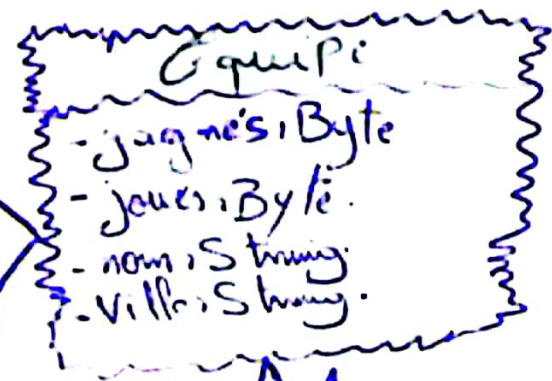 Equipe
- gagnés : Byte
- joués : Byte.
- nom : String.
- Ville : String.